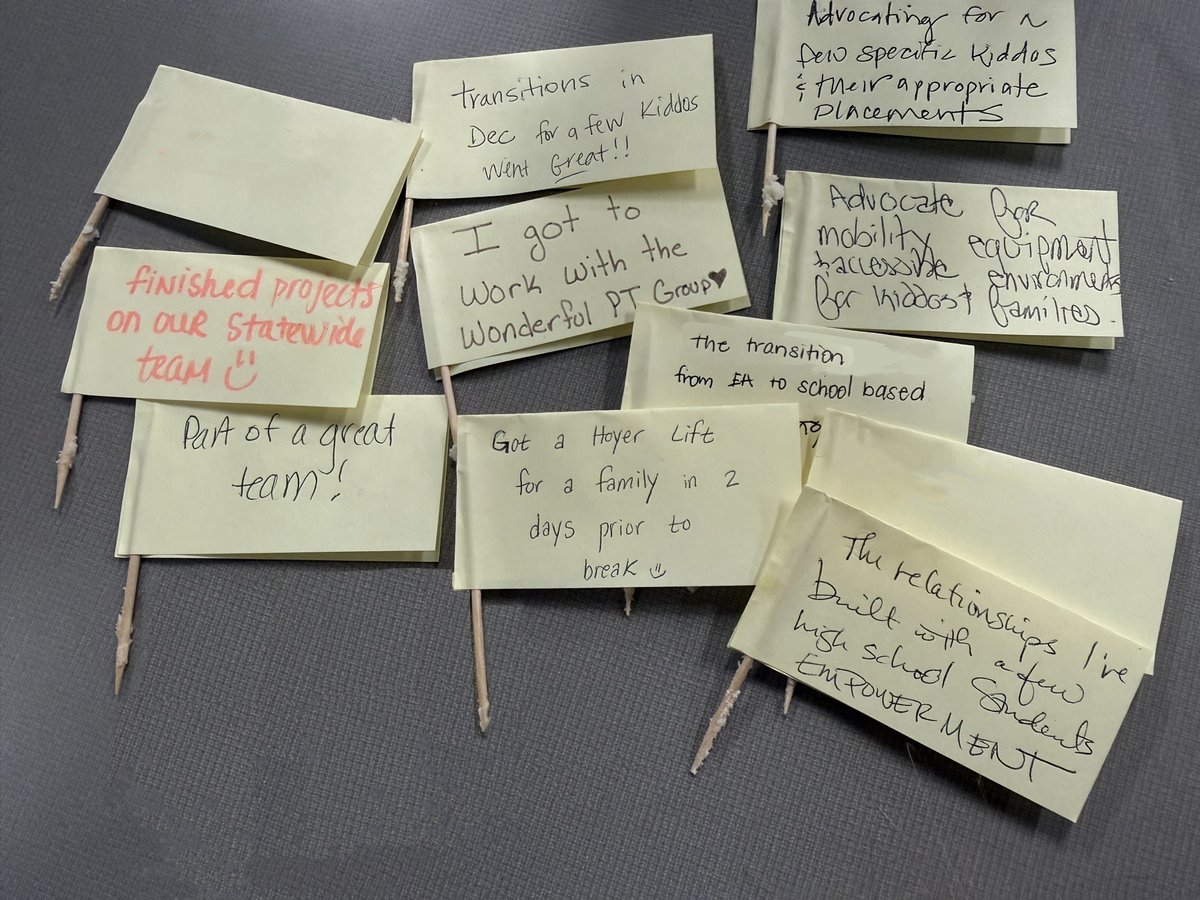 Advocating for a
few specific Kiddos
& their appropriate
placements
transitions in
Dec for a few Kiddos
went Great!!
Advocate for
mobility equipment
& accessible environments
for kiddos & families.
I got to
work with the
wonderful PT Group♥
finished projects
on our statewide
team
the transition
from EA to school based
Part of a great
team!
Got a Hoyer Lift
for a family in 2
days prior to
break
The relationships I've
built with a few
high school students
EMPOWERMENT